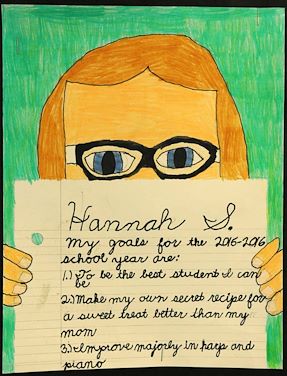 Hannah S.
My goals for the 2016-2016
school year are:
1.) To be the best student I can
be
2.) Make my own secret recipe for
a sweet treat better than my
mom
3.) Improve majorly in harp and
piano